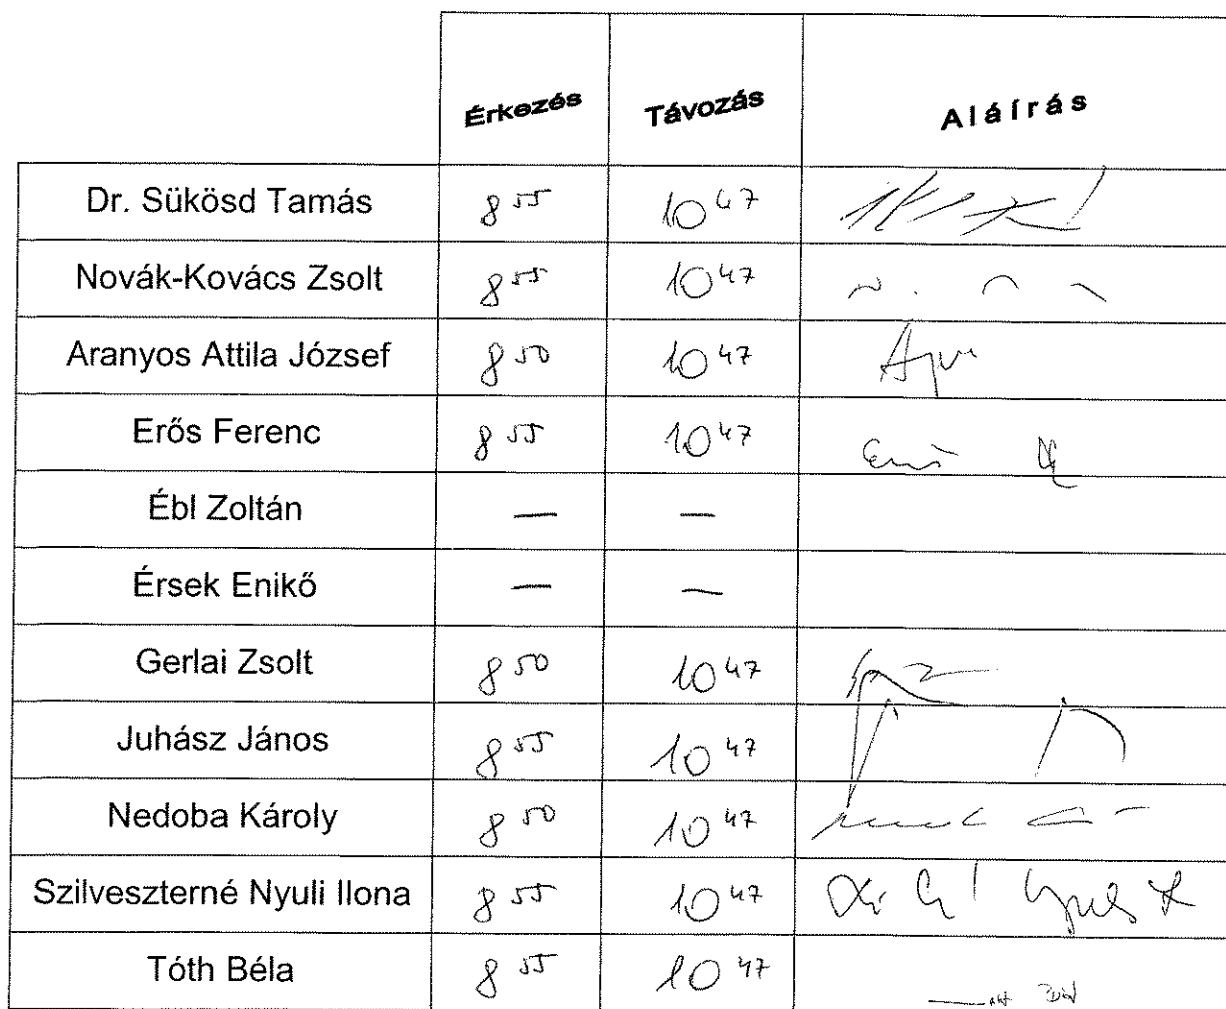 Érkezés Távozás Aláírás
Dr. Sükösd Tamás 8 55 10 47
Novák-Kovács Zsolt 8 55 10 47
Aranyos Attila József 8 50 10 47
Erős Ferenc 8 55 10 47
Ébl Zoltán — —
Érsek Enikő — —
Gerlai Zsolt 8 50 10 47
Juhász János 8 55 10 47
Nedoba Károly 8 50 10 47
Szilveszterné Nyuli Ilona 8 55 10 47
Tóth Béla 8 55 10 47